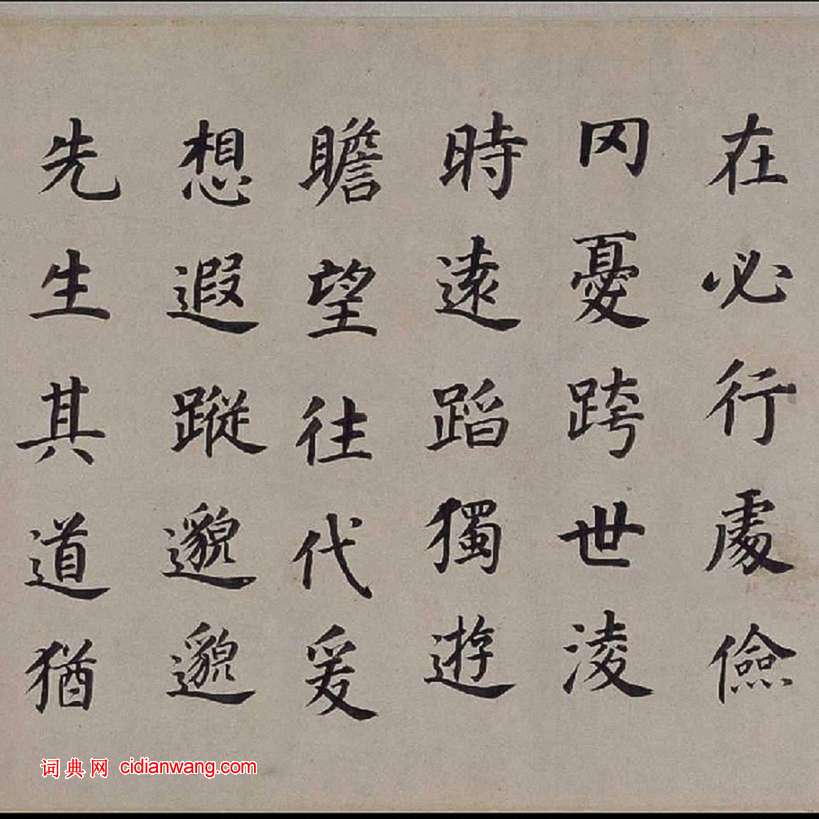 在必行處儉
罔憂跨世淩
時遠蹈獨遊
瞻望往代爰
想遐蹤邈邈
先生其道猶
词典网 cidianwang.com